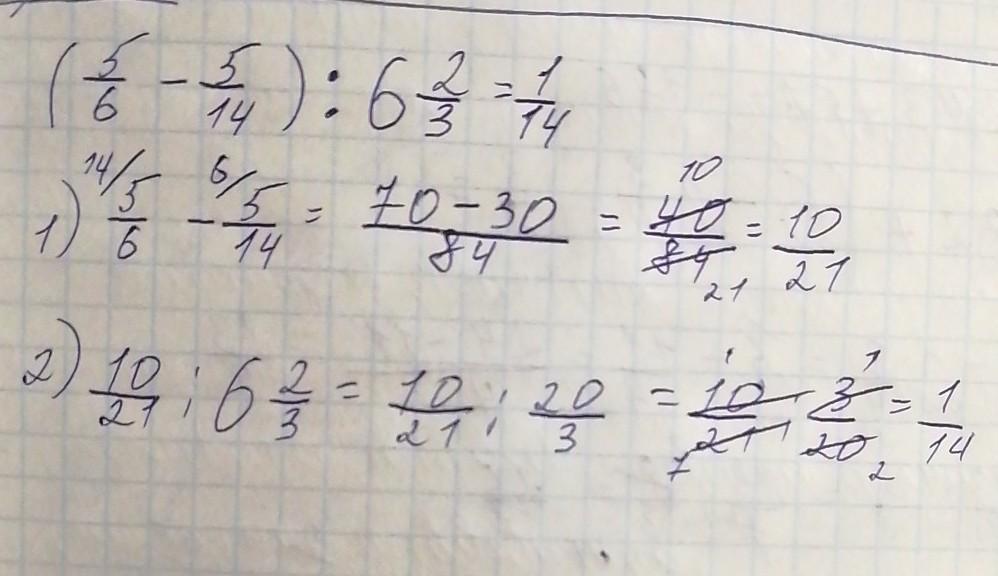 (5/6 - 5/14) : 6 2/3 = 1/14
1) 14/ 5/6 - 6/ 5/14 = 70-30/84 = 40/84 10 21 = 10/21
2) 10/21 : 6 2/3 = 10/21 : 20/3 = 10/21 · 3/20 1 7 1 2 = 1/14